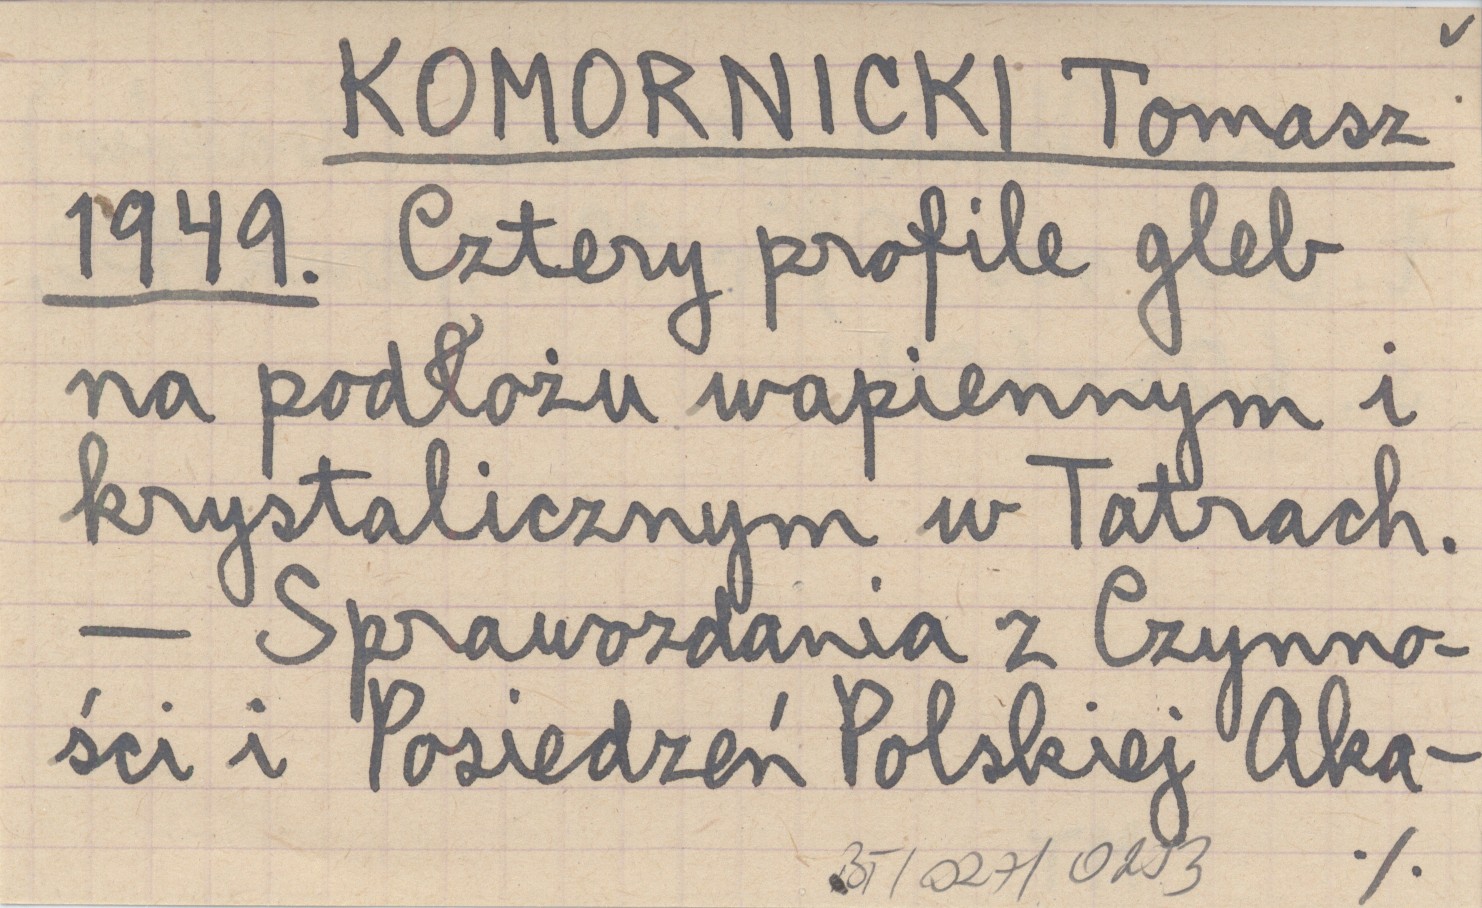 KOMORNICKI Tomasz
1949. Cztery profile gleb
na podłożu wapiennym i
krystalicznym w Tatrach.
— Sprawozdania z Czynno-
ści i Posiedzeń Polskiej Aka-
BT/027/0253
./.